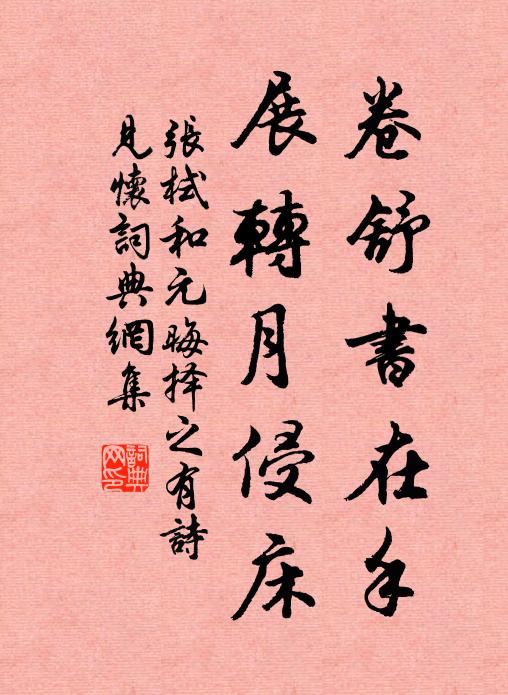 卷舒書在手
展轉月侵床
張栻和元晦择之有詩
見懷詞典網集
詞典
网印